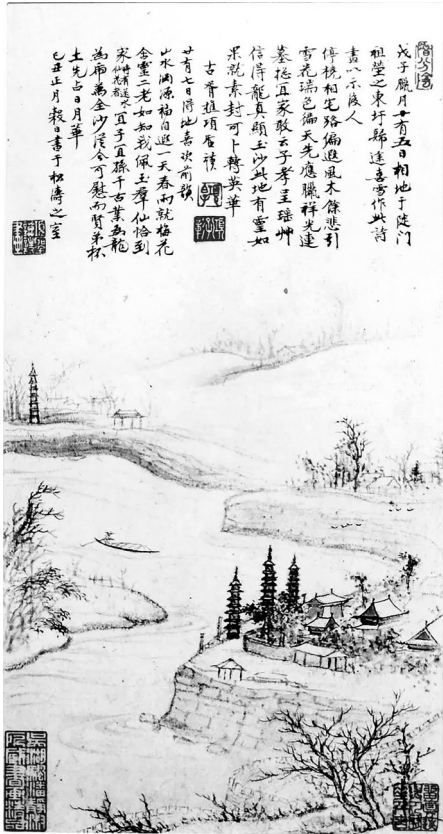 戊子臘月廿有五日相地于陡門
祖塋之東圩歸途喜雪作此詩
畫以示後人
停橈相宅路偏遐風木餘悲引
雪花瑞色徧天先應臘祥光連
墓總宜家敢云子孝呈瑤艸
信得龍真顯玉沙此地有靈如
果就素封可卜轉英華
古胥樵項
廿有七日得地喜次前韻
山水淵源福自遐一天春雨就梅花
含靈二老如知我佩玉羣仙恰到
家時有送水仙花者宜子宜孫千古業為龍
為萬金沙從今可慰兩賢弟杯
土先占日月華
己丑正月穀日書于松濤之室